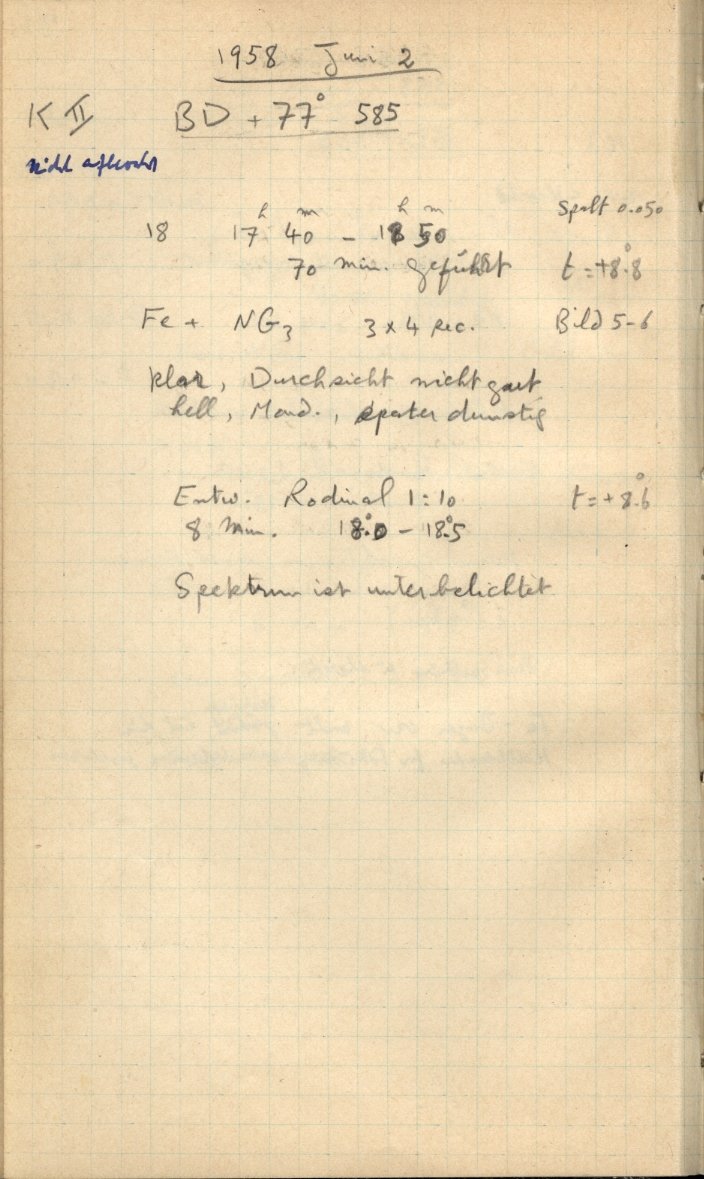 1958 Juni 2
K II BD + 77° 585
nicht
Spalt 0.050
18 17h 40m - 18h 50m
70 min. geführt t = +8°.8
Fe + NG3 3 x 4 sec. Bild 5-6
klar, Durchsicht nicht gut
hell, Mond., später dunstig
Entw. Rodinal 1:10 t = +8°.6
8 Min. 18°.0 - 18°.5
Spektrum ist unterbelichtet